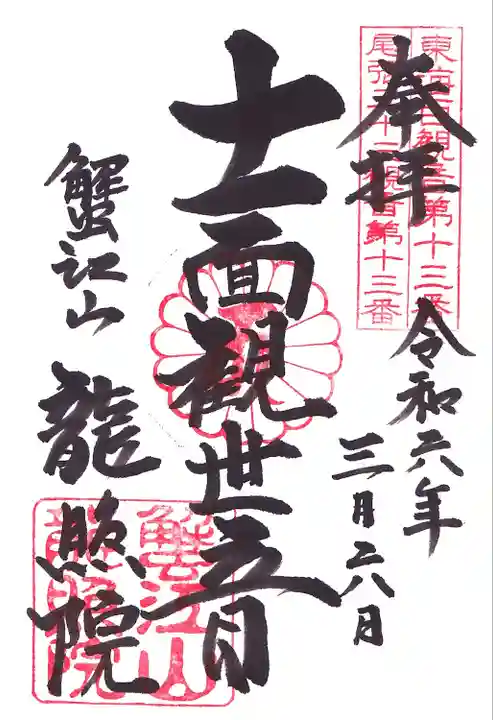 東海百観音第十三番
尾張三十三観音第十三番
奉拝
令和六年
三月二八日
十一面観世音
蟹江山
龍照院
蟹江山
龍照院